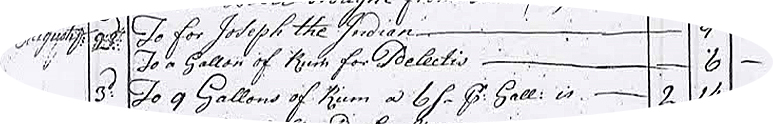 August 2d To for Joseph the Indian
To a Gallon of Rum for Delectis 6
3d To 9 Gallons of Rum a 6/- Pr Gall: is 2 14